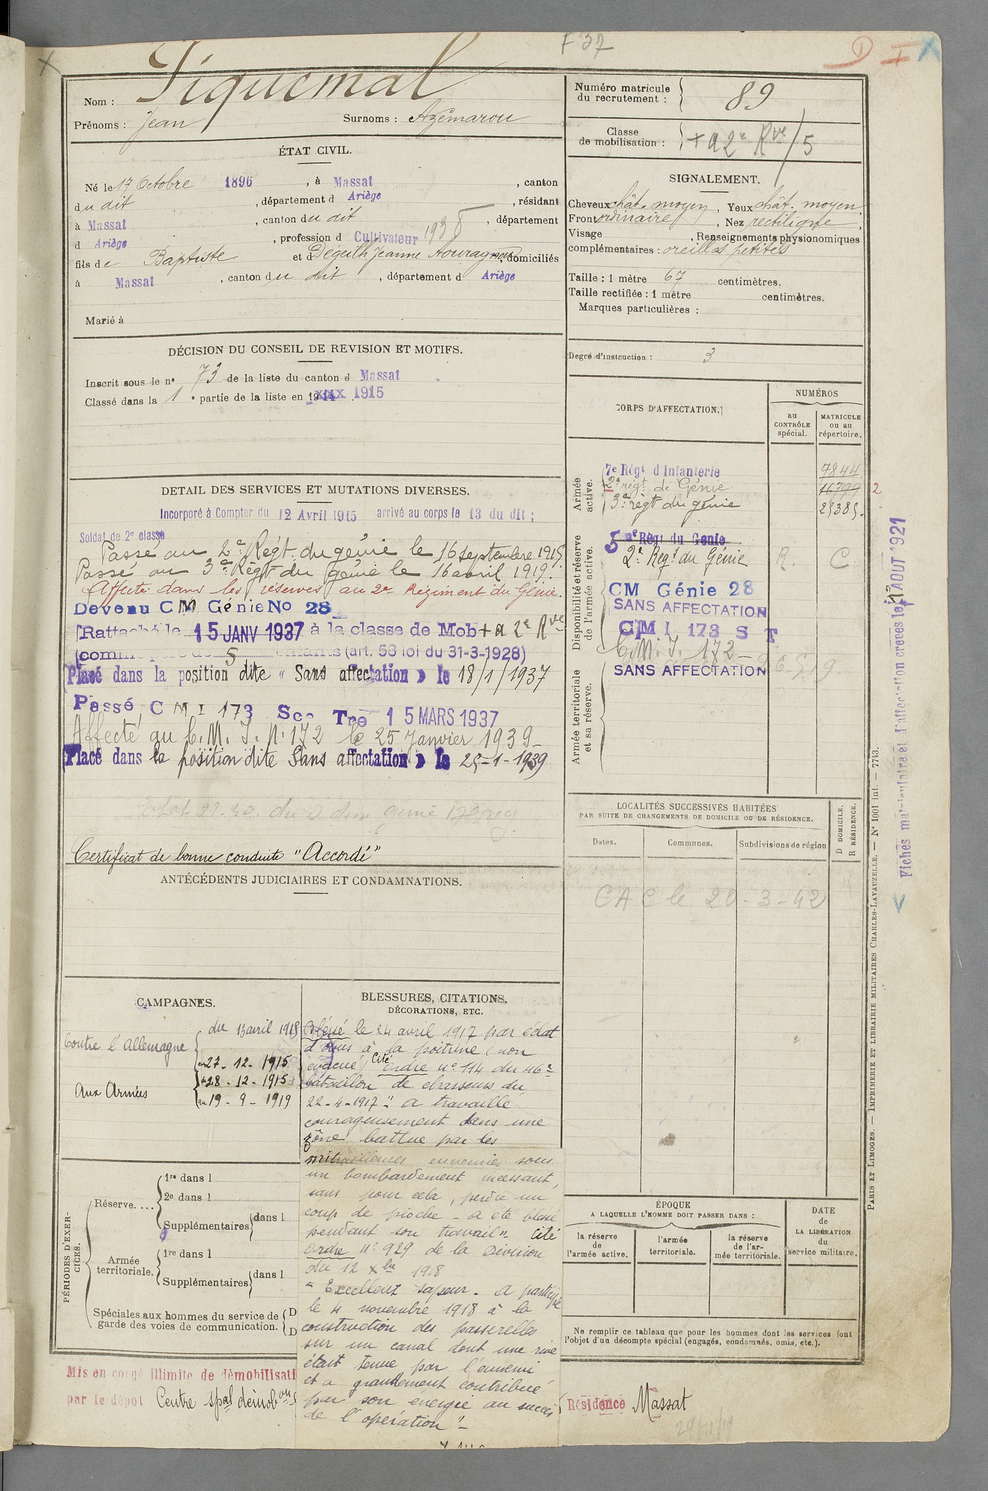 F 37
D I
Nom : Piquemal
Prénoms : Jean Surnoms : Azémarou
ÉTAT CIVIL.
Né le 17 Octobre 1896, à Massat, canton
du dit, département d Ariège, résidant
à Massat, canton du dit, département
d Ariège, profession d Cultivateur
fils de Baptiste et d Déguilh Jeanne domiciliés
à Massat, canton du dit, département d Ariège
Marié à
DÉCISION DU CONSEIL DE REVISION ET MOTIFS.
Inscrit sous le n° 73 de la liste du canton d Massat
Classé dans la 1e partie de la liste en 1915
DETAIL DES SERVICES ET MUTATIONS DIVERSES.
Incorporé à Compter du 12 Avril 1915 arrivé au corps le 13 du dit ;
Soldat de 2e classe
Passé au 2e Régt. du génie le 16 septembre 1915
Passé au 3e Régt du génie le 16 avril 1919.
Affecté dans les réserves au 2e Régiment du Génie.
Devenu CM Génie No 28
Rattaché le 15 JANV 1937 à la classe de Mob + a 2e Rve
(comme père de 5 enfants (art. 58 loi du 31-3-1928)
Placé dans la position dite « Sans affectation » le 18/1/1937
Passé C M I 173 Sec Tre 15 MARS 1937
Affecté au C.M.I. N° 172 le 25 Janvier 1939
Placé dans la position dite Sans affectation » le 25-1-1939
Certificat de bonne conduite "Accordé"
ANTÉCÉDENTS JUDICIAIRES ET CONDAMNATIONS.
CAMPAGNES.
Contre l'Allemagne
du 13 avril 1915
au 27-12-1915
Aux Armées
du 28-12-1915
au 19-9-1919
BLESSURES, CITATIONS,
DÉCORATIONS, ETC.
Blessé le 24 avril 1917 par éclat
d'obus à la poitrine (non
évacué) Cité Ordre n° 114 du 46e
bataillon de chasseurs du
22-4-1917 " a travaillé
courageusement dans une
zône battue par les
mitrailleuses ennemies sous
un bombardement incessant,
sans pour cela, perdre un
coup de pioche - a été blessé
pendant son travail". Cité
Ordre N° 929 de la Division
du 12 Xbre 1918
" Excellent sapeur. A participé
le 4 novembre 1918 à la
construction des passerelles
sur un canal dont une rive
était tenue par l'ennemi
et a grandement contribué
par son énergie au succès
de l'opération "-
PÉRIODES D'EXERCICES.
Réserve....
1re dans l
2e dans l
Supplémentaires dans l
Armée territoriale.
1re dans l
Supplémentaires dans l
Spéciales aux hommes du service de
garde des voies de communication.
D
D
Mis en congé illimité de démobilisati
par le dépôt Centre spal démobon
Numéro matricule
du recrutement : 89
Classe
de mobilisation : + a 2e Rve/5
SIGNALEMENT.
Cheveux chât. moyen, Yeux chât. moyen,
Front ordinaire, Nez rectiligne,
Visage , Renseignements physionomiques
complémentaires : oreilles petites
Taille : 1 mètre 67 centimètres.
Taille rectifiée : 1 mètre centimètres.
Marques particulières :
Degré d'instruction : 3
CORPS D'AFFECTATION.
NUMÉROS
au
CONTRÔLE
spécial.
MATRICULE
ou au
répertoire.
Armée
active.
7e Régt d'Infanterie 7244
2e régt de Génie
3e régt du génie 25385.
Disponibilité et réserve
de l'armée active.
2e Régt du Génie R. C
CM Génie 28
SANS AFFECTATION
CMI 173 S T
C.M.I. 172
SANS AFFECTATION
Armée territoriale
et sa réserve.
LOCALITÉS SUCCESSIVES HABITÉES
PAR SUITE DE CHANGEMENTS DE DOMICILE OU DE RÉSIDENCE.
Dates. Communes. Subdivisions de région
D DOMICILE.
R RÉSIDENCE.
CAC le 20-3-42
ÉPOQUE
A LAQUELLE L'HOMME DOIT PASSER DANS :
la réserve
de
l'armée active.
l'armée
territoriale.
la réserve
de l'ar-
mée territoriale.
DATE
de
LA LIBÉRATION
du
service militaire.
Ne remplir ce tableau que pour les hommes dont les services font
l'objet d'un décompte spécial (engagés, condamnés, omis, etc.).
Résidence Massat
PARIS ET LIMOGES. — IMPRIMERIE ET LIBRAIRIE MILITAIRES CHARLES-LAVAUZELLE. — N° 1001 int. — 7743.
Fiches matriculaire et d'affectation créées le AOUT 1921